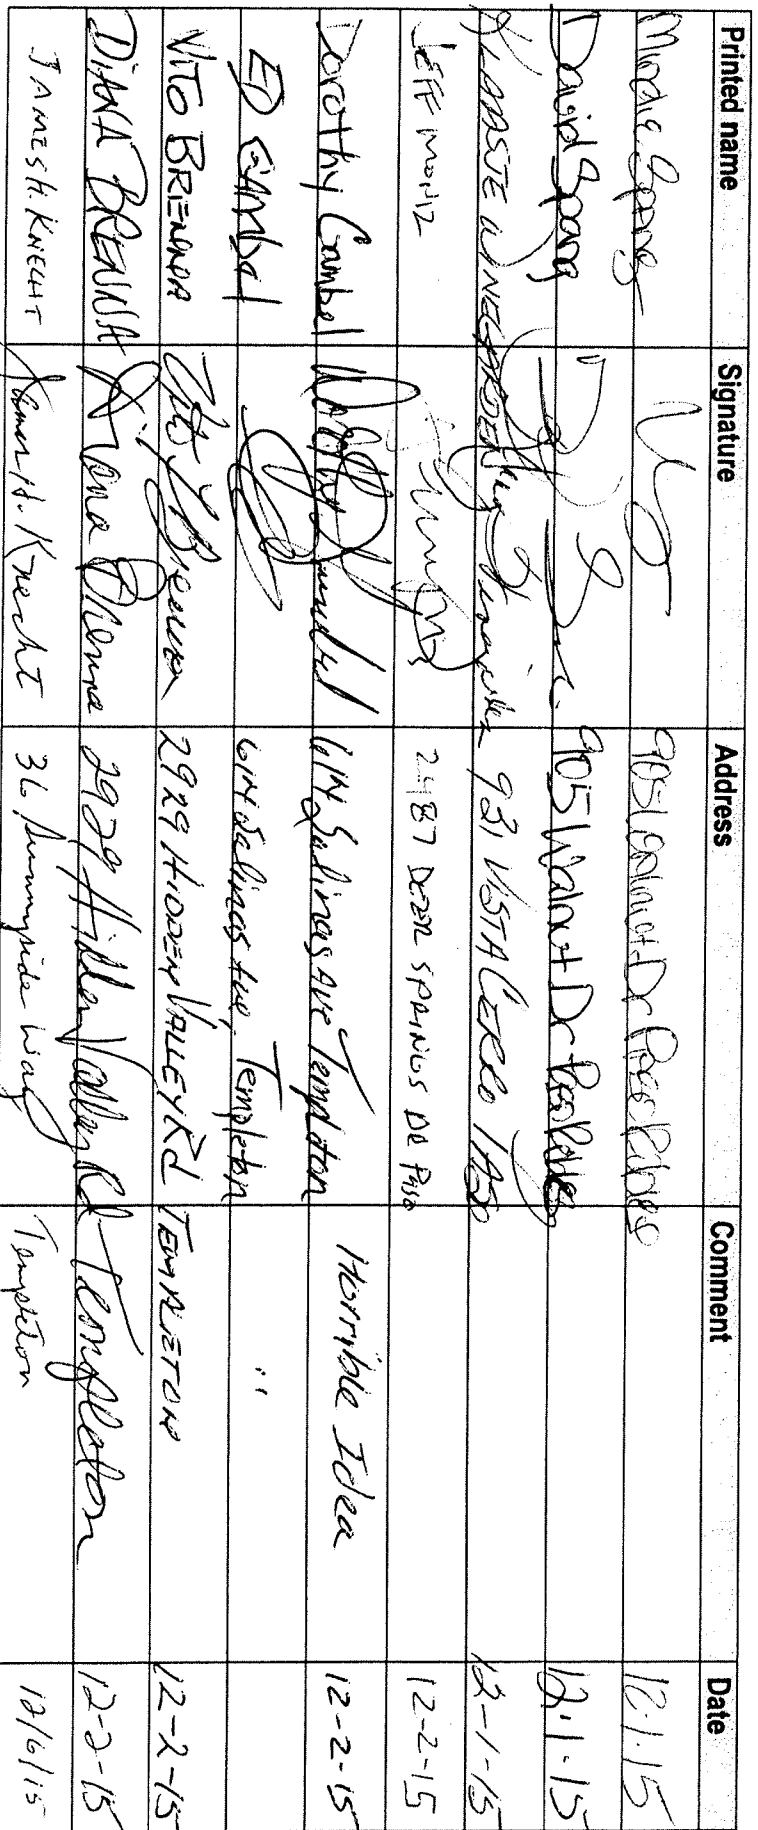 Printed name Signature Address Comment Date
Spang 905 Walnut Dr Paso Robles 12.1.15
David Spang 905 Walnut Dr Paso Robles 12.1.15
931 VISTA CERRO PASO 12-1-15
JEFF 2487 DEER SPRINGS DR PASO 12-2-15
Dorothy Gambel 614 Salinas Ave Templeton Horrible Idea 12-2-15
ED GAMbel 614 Salinas Ave. Templeton "
VITO BRENNA Vito Brenna 2929 HIDDEN VALLEY Rd TEMPLETON 12-2-15
DIANA BRENNA Diana Brenna 2929 Hidden Valley Rd Templeton 12-2-15
JAMES H. KNECHT James H. Knecht 36 Sunnyside Way Templeton 12/6/15